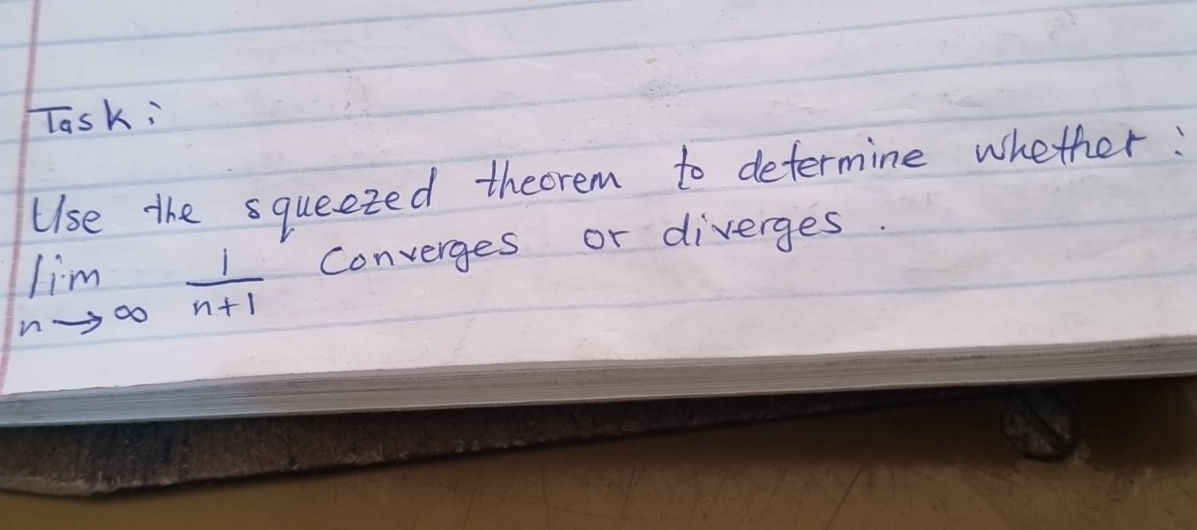 Task:
Use the squeezed theorem to determine whether:
lim n→∞ 1/n+1 converges or diverges.